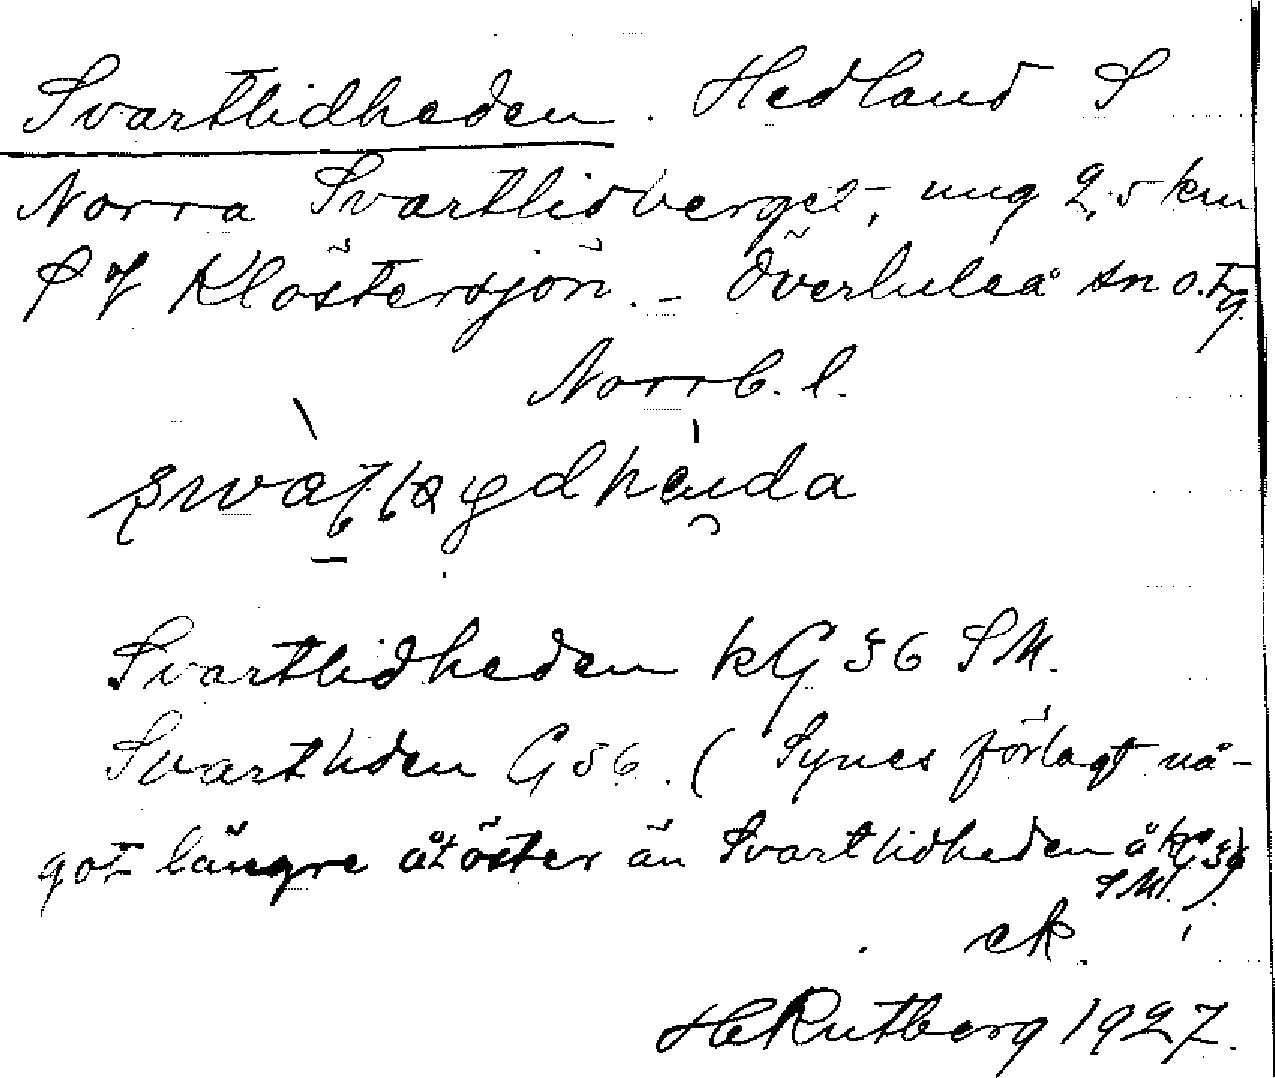 Svartlidheden. Hedland S
Norra Svartlidberget, ung 2,5 km
S f Klöstersjön. - Överluleå sn o. tg.
Norrb. l.
Svartlidheden kG 36 SM.
Svartliden G 56. (Synes förlagt nå-
got längre åt öster än Svartlidheden å kG 36
SM).
ck.
HRutberg 1927.